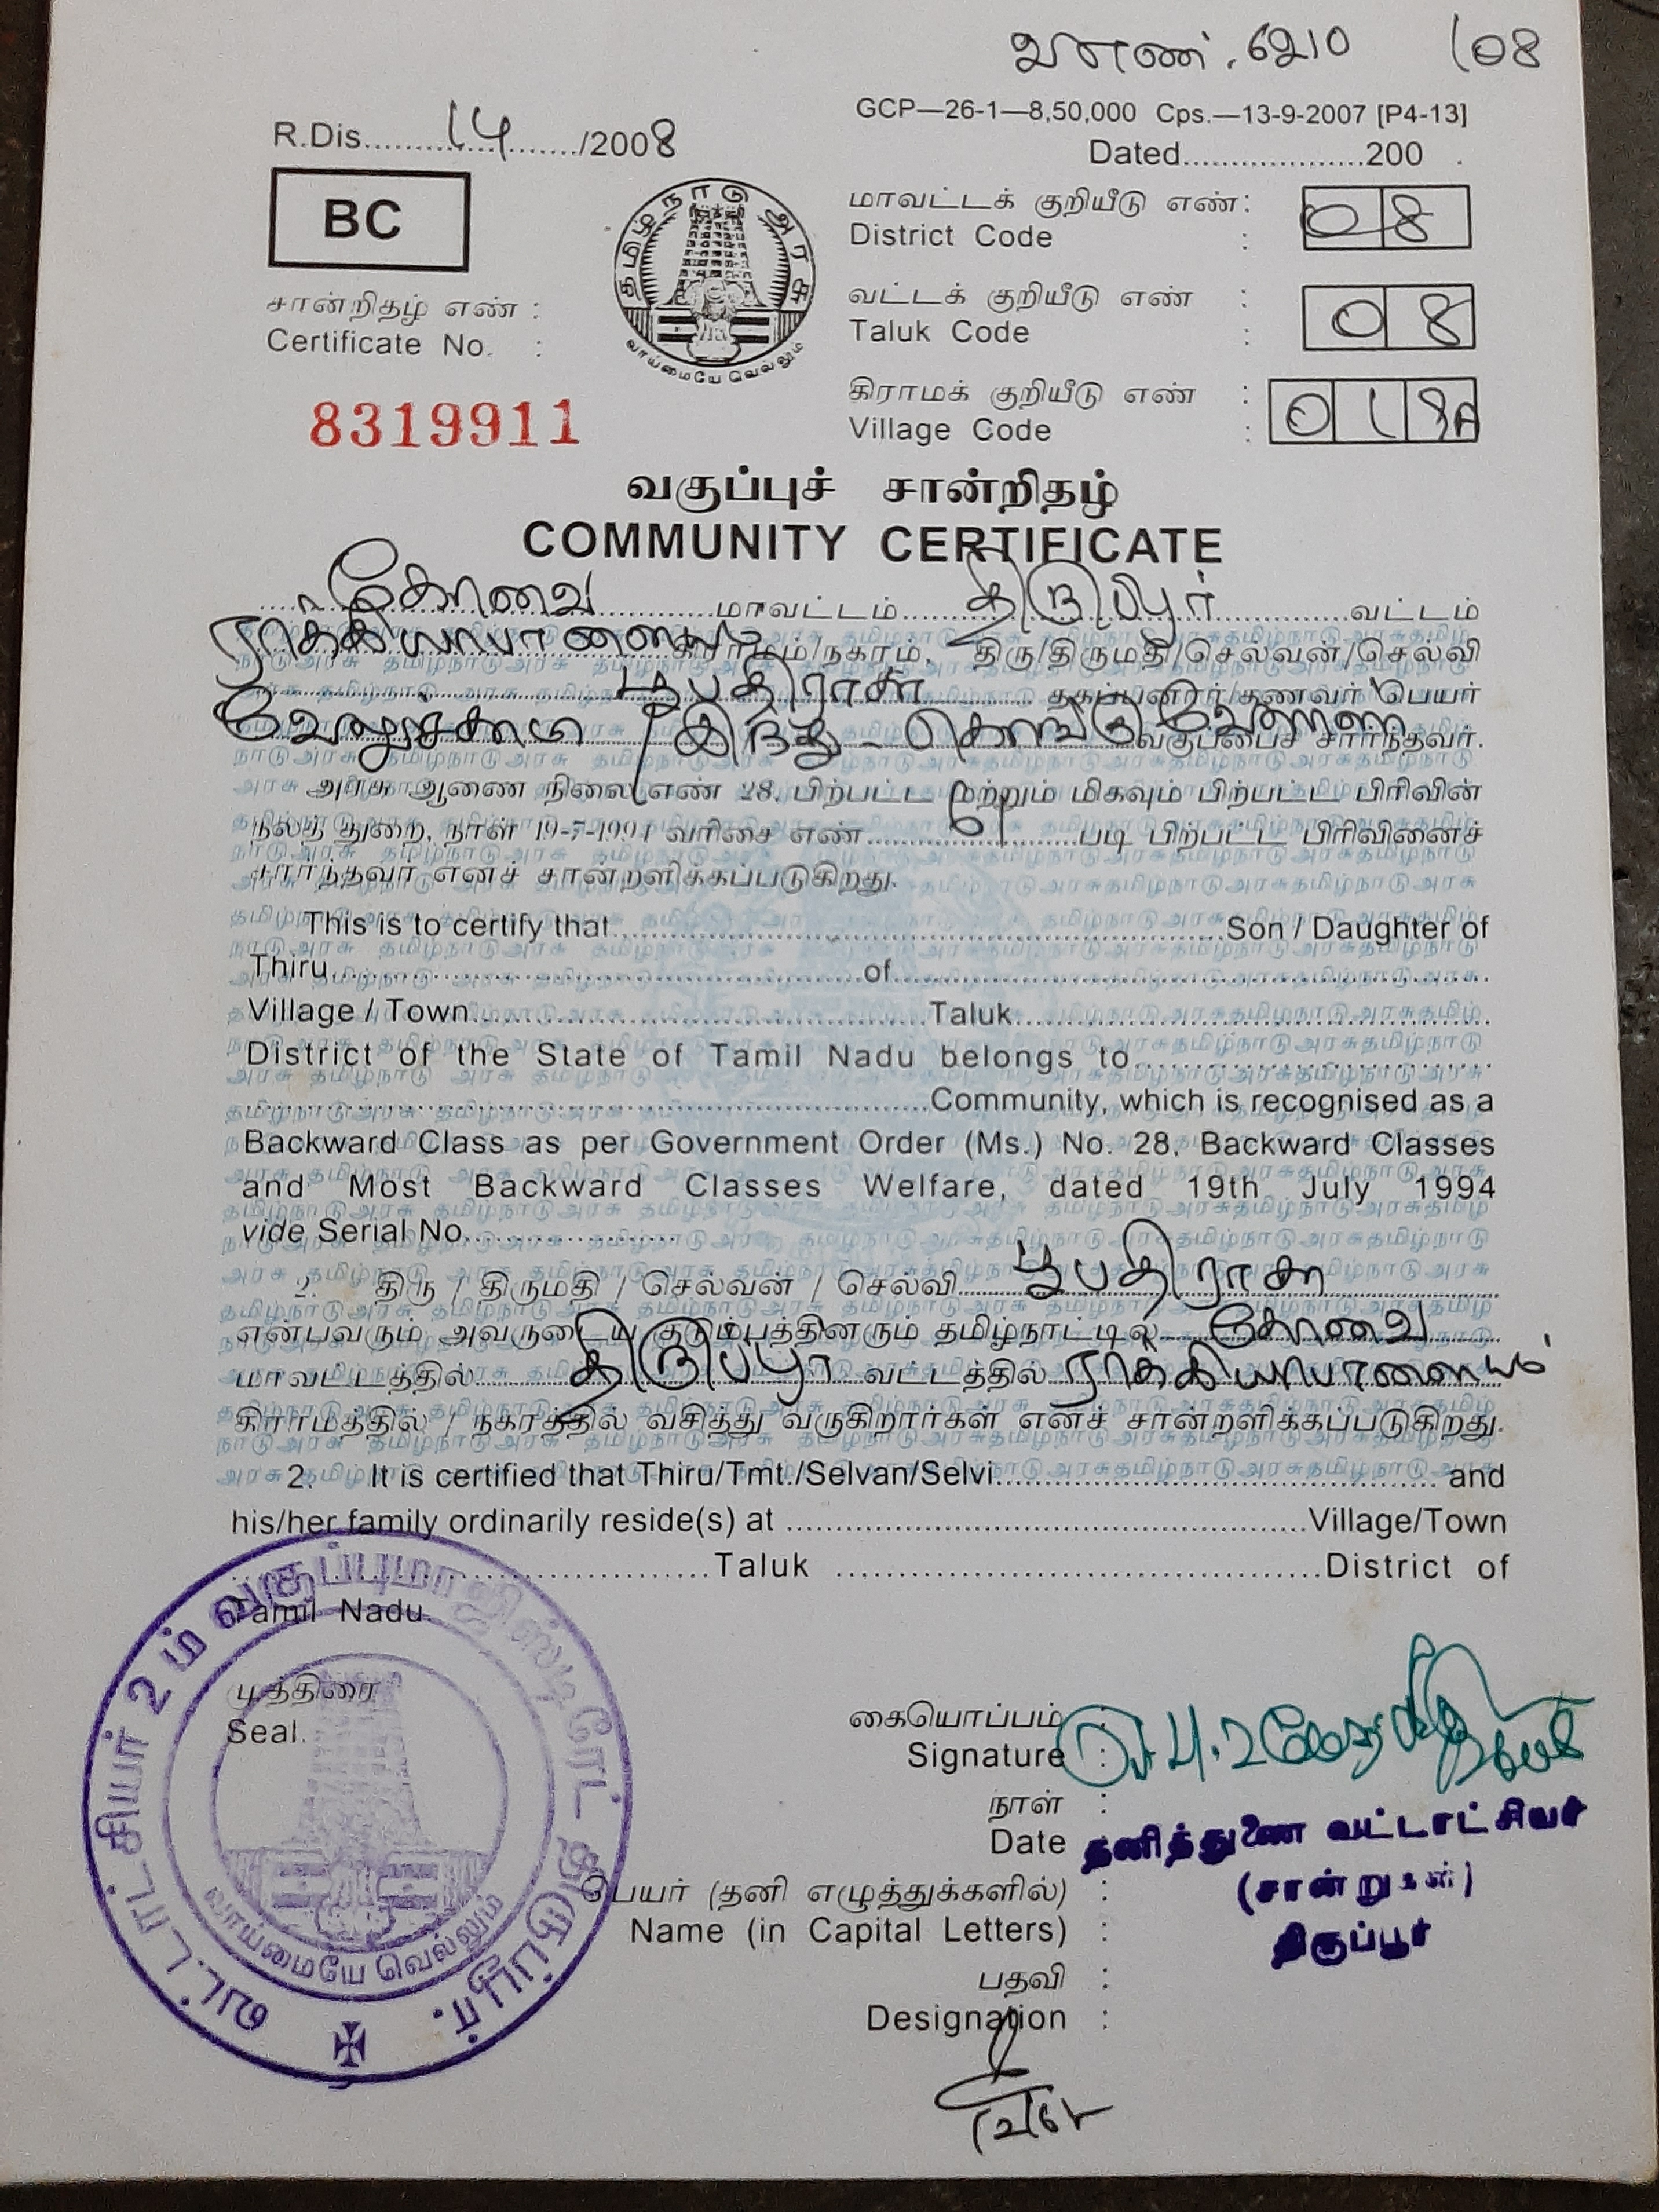 வஎண். 6210 /08
GCP—26-1—8,50,000 Cps.—13-9-2007 [P4-13]
R.Dis..........14........./2008
Dated....................200 .
BC
தமிழ்நாடு அரசு
வாய்மையே வெல்லும்
மாவட்டக் குறியீடு எண் :
District Code : 08
சான்றிதழ் எண் :
Certificate No. :
வட்டக் குறியீடு எண் :
Taluk Code : 08
8319911
கிராமக் குறியீடு எண் :
Village Code : 018A
வகுப்புச் சான்றிதழ்
COMMUNITY CERTIFICATE
கோவை மாவட்டம் திருப்பூர் வட்டம்
ராக்கியாபாளையம் கிராமம்/நகரம், திரு/திருமதி/செல்வன்/செல்வி
பூபதிராசா தகப்பனார்/கணவர் பெயர்
வேலுச்சாமி இந்து - கொங்கு வேளாள வகுப்பைச் சார்ந்தவர்.
அரசு ஆணை நிலை எண் 28, பிற்பட்ட மற்றும் மிகவும் பிற்பட்ட பிரிவின்
நலத் துறை, நாள் 19-7-1994 வரிசை எண் படி பிற்பட்ட பிரிவினைச்
சார்ந்தவர் எனச் சான்றளிக்கப்படுகிறது.
This is to certify that..........Son / Daughter of
Thiru..........of..........
Village / Town..........Taluk..........
District of the State of Tamil Nadu belongs to..........
..........Community, which is recognised as a
Backward Class as per Government Order (Ms.) No. 28, Backward Classes
and Most Backward Classes Welfare, dated 19th July 1994
vide Serial No..........
2. திரு / திருமதி / செல்வன் / செல்வி பூபதிராசா
என்பவரும் அவருடைய குடும்பத்தினரும் தமிழ்நாட்டில் கோவை
மாவட்டத்தில் திருப்பூர் வட்டத்தில் ராக்கியாபாளையம்
கிராமத்தில் / நகரத்தில் வசித்து வருகிறார்கள் எனச் சான்றளிக்கப்படுகிறது.
2. It is certified that Thiru/Tmt./Selvan/Selvi..........and
his/her family ordinarily reside(s) at ..........Village/Town
..........Taluk ..........District of
Tamil Nadu.
வட்டாட்சியர் 2ம் வகுப்பு மாஜிஸ்டிரேட் திருப்பூர்.
வாய்மையே வெல்லும்
முத்திரை
Seal.
கையொப்பம் :
Signature :
நாள் :
Date
தனித்துணை வட்டாட்சியர்
(சான்றுகள்)
திருப்பூர்
பெயர் (தனி எழுத்துக்களில்) :
Name (in Capital Letters) :
பதவி :
Designation :